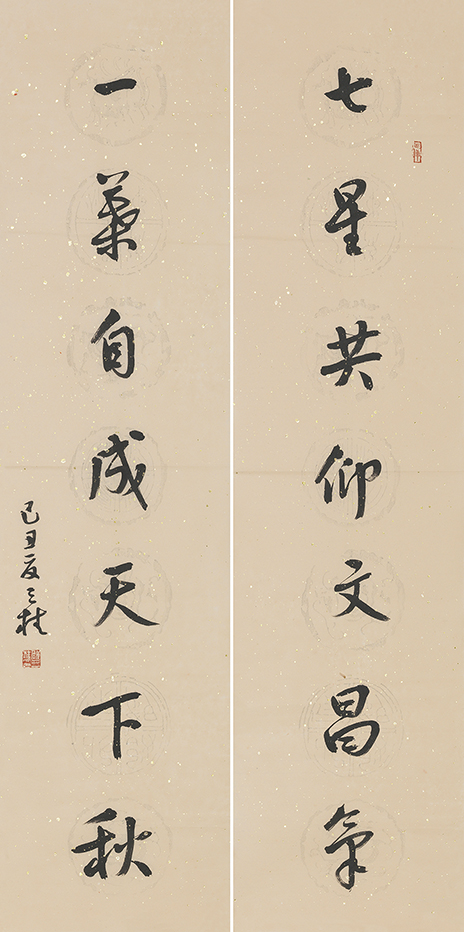 七星共仰文昌气
一叶自成天下秋
己丑夏之桂